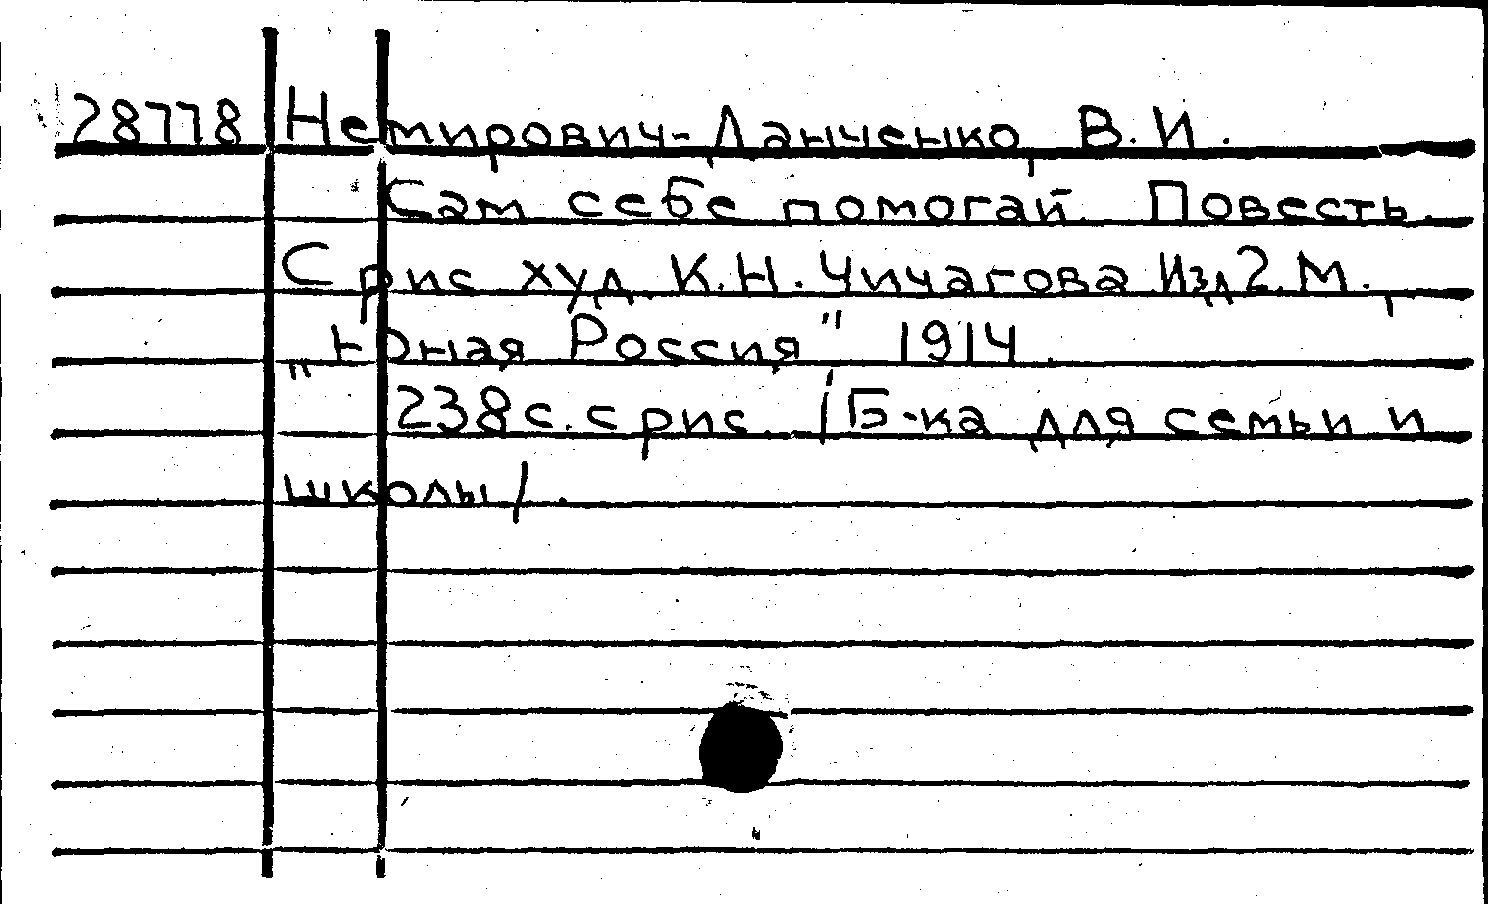 28778 Немирович-Данченко, В.И.
Сам себе помогай. Повесть.
С рис худ. К.Н.Чичагова Изд2.М.,
„Юная Россия" 1914.
238с.с рис. /Б-ка для семьи и
школы/.